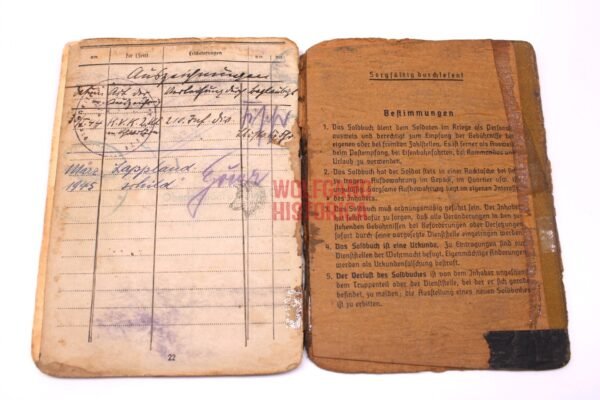 von
für (Zeit)
Erläuterungen
von
Auszeichnungen
Art der
Auszeichnung
Verleihung
K.V.K. 2. Kl.
210. Inf. Div.
März Lappland
1945 schild
22
WOLFGANG
HISTORICA
Sorgfältig durchlesen!
Bestimmungen
1. Das Soldbuch dient dem Soldaten im Kriege als Personal-
ausweis und berechtigt zum Empfang der Gebührnisse bei
eigenen oder bei fremden Zahlstellen. Es ist ferner als Ausweis
beim Postempfang, bei Eisenbahnfahrten, bei Kommandos und
Urlaub zu verwenden.
2. Das Soldbuch hat der Soldat stets in einer Rocktasche bei sich
zu tragen. Aufbewahrung im Gepäck, im Quartier usw. ist
Aufbewahrung liegt im eigenen Interesse
des Inhabers.
3. Das Soldbuch muß ordnungsmäßig geführt sein. Der Inhaber
hat selbst dafür zu sorgen, daß alle Veränderungen in den zu-
stehenden Gebührnissen bei Beförderungen oder Versetzungen
sofort durch seine vorgesetzte Dienststelle eingetragen werden.
4. Das Soldbuch ist eine Urkunde. Zu Eintragungen sind nur
Dienststellen der Wehrmacht befugt. Eigenmächtige Änderungen
werden als Urkundenfälschung bestraft.
5. Der Verlust des Soldbuches ist von dem Inhaber ungesäumt
dem Truppenteil oder der Dienststelle, bei der er sich gerade
befindet, zu melden; die Ausstellung eines neuen Soldbuches
ist zu erbitten.